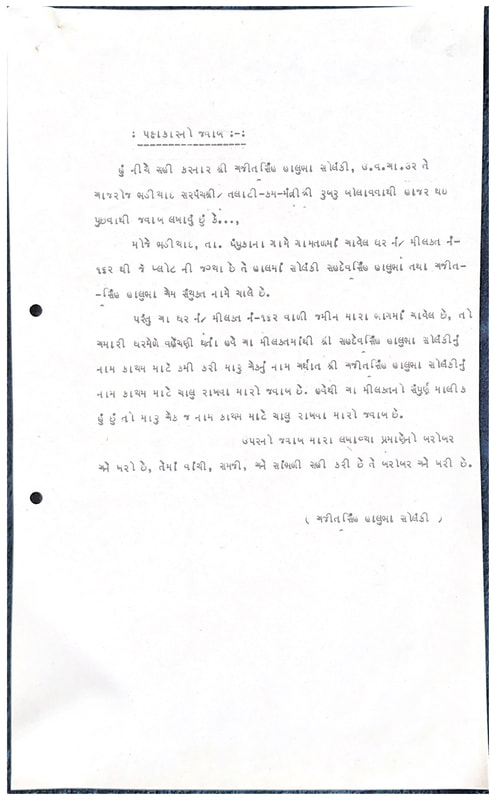 : પક્ષકારનો જવાબ :-:
હું નીચે સહી કરનાર શ્રી ગજીતસિંહ હાલુભા સોલંકી, ઉ.વ.ગા.૭૨ તે
ગાજરોજ ભડીયાદ સરપંચશ્રી/ તલાટી-કમ-મંત્રીશ્રી રૂબરૂ બોલાવવાથી હાજર થઇ
પુછવાથી જવાબ લખાવું છું કે...,
મોજે ભડીયાદ, તા. ધંધુકાના ગામે ગામતળમાં ગાવેલ ઘર નં/ મીલકત નં-
૧૬૨ થી જે પ્લોટ ની જગ્યા છે તે હાલમાં સોલંકી સહદેવસિંહ હાલુભા તથા ગજીત-
-સિંહ હાલુભા ગેમ સંયુક્ત નામે ચાલે છે.
પરંતુ ગા ઘર નં/ મીલકત નં-૧૬૨ વાળી જમીન મારા ભાગમાં ગાવેલ છે, તો
ગમારી ઘરમેળે વહેંચણી થતાં હવે ગા મીલકતમાંથી શ્રી સહદેવસિંહ હાલુભા સોલંકીનું
નામ કાયમ માટે કમી કરી મારૂ ગેકનું નામ ગર્થાત શ્રી ગજીતસિંહ હાલુભા સોલંકીનું
નામ કાયમ માટે ચાલુ રાખવા મારો જવાબ છે. હવેથી ગા મીલકતનો સંપુર્ણ માલીક
હું છું તો મારૂ ગેક જ નામ કાયમ માટે ચાલુ રાખવા મારો જવાબ છે.
ઉપરનો જવાબ મારા લખાવ્યા પ્રમાણેનો બરોબર
એ ખરો છે, તેમાં વાંચી, સમજી, એ સાંભળી સહી કરી છે તે બરોબર એ ખરી છે.
( ગજીતસિંહ હાલુભા સોલંકી )